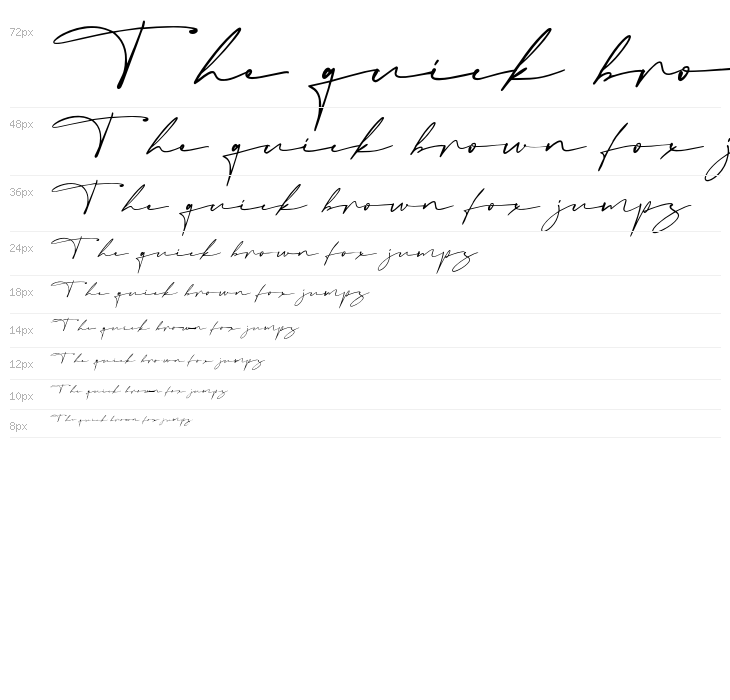 72px The quick bro
48px The quick brown fox j
36px The quick brown fox jumpz
24px The quick brown fox jumpz
18px The quick brown fox jumpz
14px The quick brown fox jumpz
12px The quick brown fox jumpz
10px The quick brown fox jumpz
8px The quick brown fox jumpz